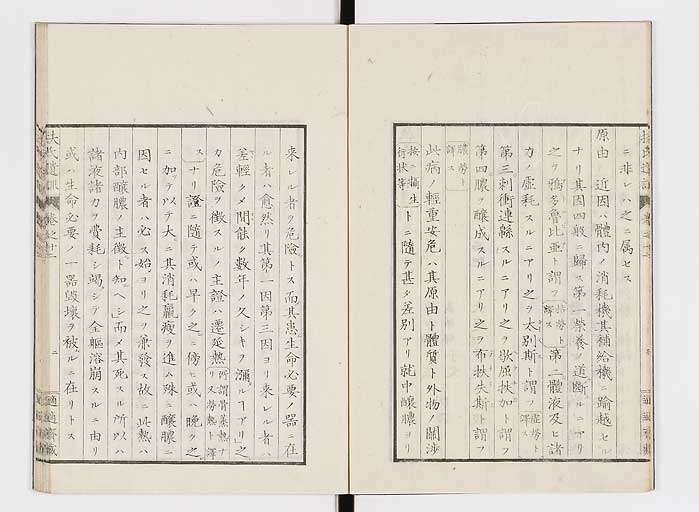 ニ非レハ之ニ属セス
原由 近因ハ體内ノ消耗機其補給機ニ踰越セル
ナリ其因四般ニ歸ス第一榮養ノ道断ルニアリ
之ヲ 多魯比亜ト謂フ 第二體液及ヒ諸
力ノ虚耗スルニアリ之ヲ太別斯ト謂フ虚勞ト譯ス
第三刺衝連緜スルニアリ之ヲ歇屈扶加ト謂フ
第四膿ヲ醸成スルニアリ之ヲ布袟失斯ト謂フ
膿勞ト譯ス
此病ノ輕重安危ハ其原由ト體質ト外物ノ關渉
按ニ攝生行状等トニ隨テ甚タ差別アリ就中醸膿ヨリ
来レル者ヲ危険トス而其患生命必要ノ器ニ在
ル者ハ愈然リ其第一因第三因ヨリ来レル者ハ
差輕クメ間能ク数年ノ久シキヲ瀰ルヿアリ之
カ危險ヲ徴スルノ主證ハ遷延熱所謂骨蒸熱ナリ勞熱ト譯ス
ナリ證ニ隨テ或ハ早ク之ニ傍ヒ或ハ晩ク之
ニ加テ以テ大ニ其消耗羸瘦ヲ進ム殊ニ醸膿ニ
因セル者ハ必ス始ヨリ之ヲ兼發ス故ニ此熱ハ
内部醸膿ノ主徴ト知ヘシ而メ其死スル所以ハ
諸液諸力ヲ費耗シ竭シテ全軀溶崩スルニ由リ
或ハ生命必要ノ一器毀壊ヲ被ルニ在リトス
扶氏遺訓 巻之十二
二
適適齋藏